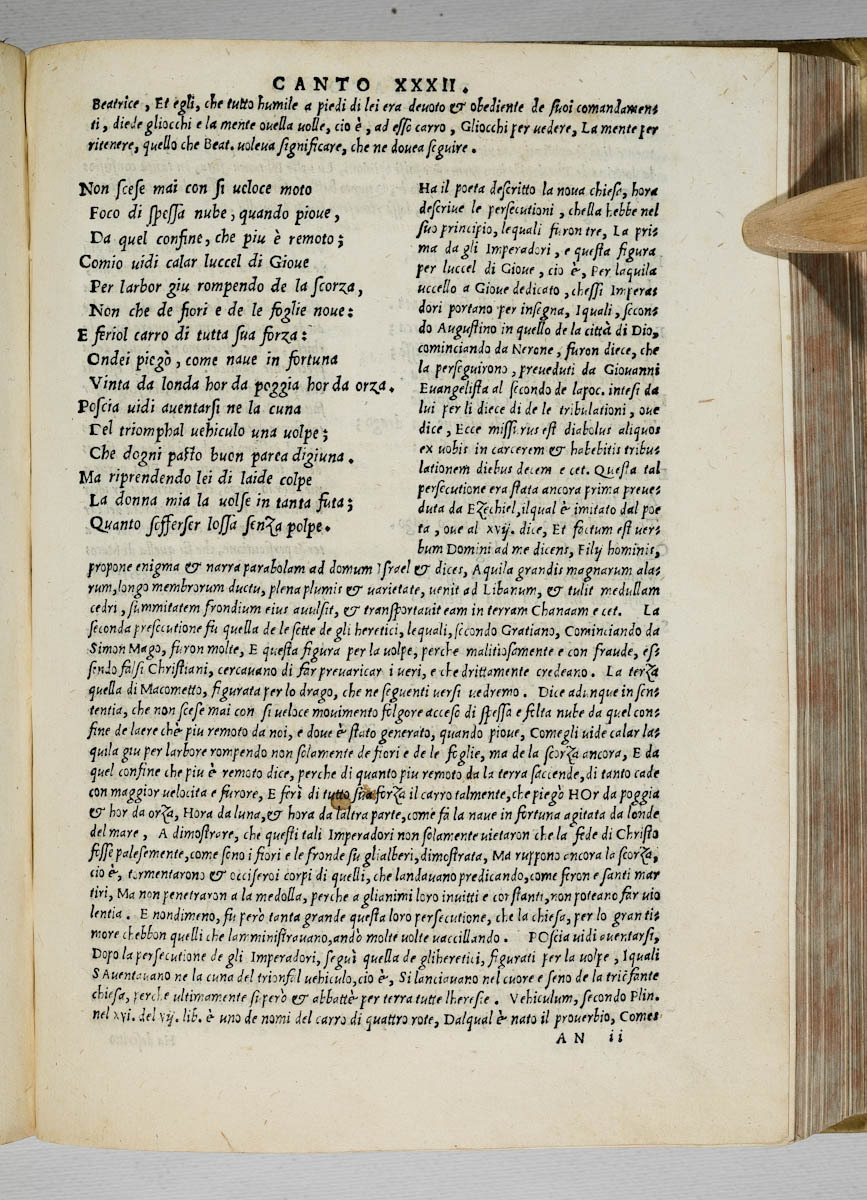 CANTO XXXII.
Beatrice, Et egli, che tutto humile a piedi di lei era deuoto & obediente de suoi comandamen-
ti, diede gliocchi e la mente ouella uolle, cio è, ad esso carro, Gliocchi per uedere, La mente per
ritenere, quello che Beat. uoleua significare, che ne douea seguire.
Non scese mai con si ueloce moto
Foco di spessa nube, quando pioue,
Da quel confine, che piu è remoto;
Comio uidi calar luccel di Gioue
Per larbor giu rompendo de la scorza,
Non che de fiori e de le foglie noue:
E feriol carro di tutta sua forza:
Ondei piegò, come naue in fortuna
Vinta da londa hor da poggia hor da orza.
Poscia uidi auentarsi ne la cuna
Del triomphal uehiculo una uolpe;
Che dogni pasto buon parea digiuna.
Ma riprendendo lei di laide colpe
La donna mia la uolse in tanta futa;
Quanto sofferser lossa senza polpe.
Ha il poeta descritto la noua chiesa, hora
descriue le persecutioni, chella hebbe nel
suo principio, lequali furon tre, La pri-
ma da gli Imperadori, e questa figura
per luccel di Gioue, cio è, Per laquila
uccello a Gioue dedicato, chessi Impera-
dori portano per insegna, Iquali, secon-
do Augustino in quello de la città di Dio,
cominciando da Nerone, furon diece, che
la perseguirono, preueduti da Giouanni
Euangelista al secondo de lapoc. intesi da
lui per li diece di de le tribulationi, oue
dice, Ecce missurus est diabolus aliquos
ex uobis in carcerem & habebitis tribu-
lationem diebus decem e cet. Questa tal
persecutione era stata ancora prima preue-
duta da Ezechiel, ilqual è imitato dal poe
ta, oue al xvij. dice, Et factum est uer-
bum Domini ad me dicens, Fily hominis,
propone enigma & narra parabolam ad domum Israel & dices, Aquila grandis magnarum ala-
rum, longo membrorum ductu, plena plumis & uarietate, uenit ad Libanum, & tulit medullam
cedri, summitatem frondium eius auulsit, & transportauit eam in terram Chanaam e cet. La
seconda presecutione fu quella de le sette de gli heretici, lequali, secondo Gratiano, Cominciando da
Simon Mago, furon molte, E questa figura per la uolpe, perche malitiosamente e con fraude, es-
sendo falsi Christiani, cercauano di far preuaricar i ueri, e che drittamente credeano. La terza
quella di Macometto, figurata per lo drago, che ne seguenti uersi uedremo. Dice adunque in sen-
tentia, che non scese mai con si ueloce mouimento folgore acceso di spessa e folta nube da quel con-
fine de laere che piu remoto da noi, e doue è stato generato, quando pioue, Comegli uide calar la-
quila giu per larbore rompendo non solamente de fiori e de le foglie, ma de la scorza ancora, E da
quel confine che piu è remoto dice, perche di quanto piu remoto da la terra saccende, di tanto cade
con maggior uelocita e furore, E ferì di tutto sua forza il carro talmente, che piegò HOr da poggia
& hor da orza, Hora da luna, & hora da laltra parte, come fa la naue in fortuna agitata da londe
del mare, A dimostrare, che questi tali Imperadori non solamente uietaron che la fede di Christo
fosse palesemente, come sono i fiori e le fronde su glialberi, dimostrata, Ma ruppono ancora la scorza,
cio è, tormentarono & occiseroi corpi di quelli, che landauano predicando, come feron e santi mar
tiri, Ma non penetraron a la medolla, perche a glianimi loro inuitti e constanti, non poteano far uio
lentia. E nondimeno, fu però tanta grande questa loro persecutione, che la chiesa, per lo gran ti-
more chebbon quelli che lamministrauano, andò molte uolte uaccillando. POscia uidi auentarsi,
Dopo la persecutione de gli Imperadori, seguì quella de gliheretici, figurati per la uolpe, Iquali
S Auentauano ne la cuna del trionfal uehiculo, cio è, Si lanciauano nel cuore e seno de la triofante
chiesa, perche ultimamente si però & abbattè per terra tutte lheresie. Vehiculum, secondo Plin.
nel xvi. del vij. lib. è uno de nomi del carro di quattro rote, Dalqual è nato il prouerbio, Come-
AN ii